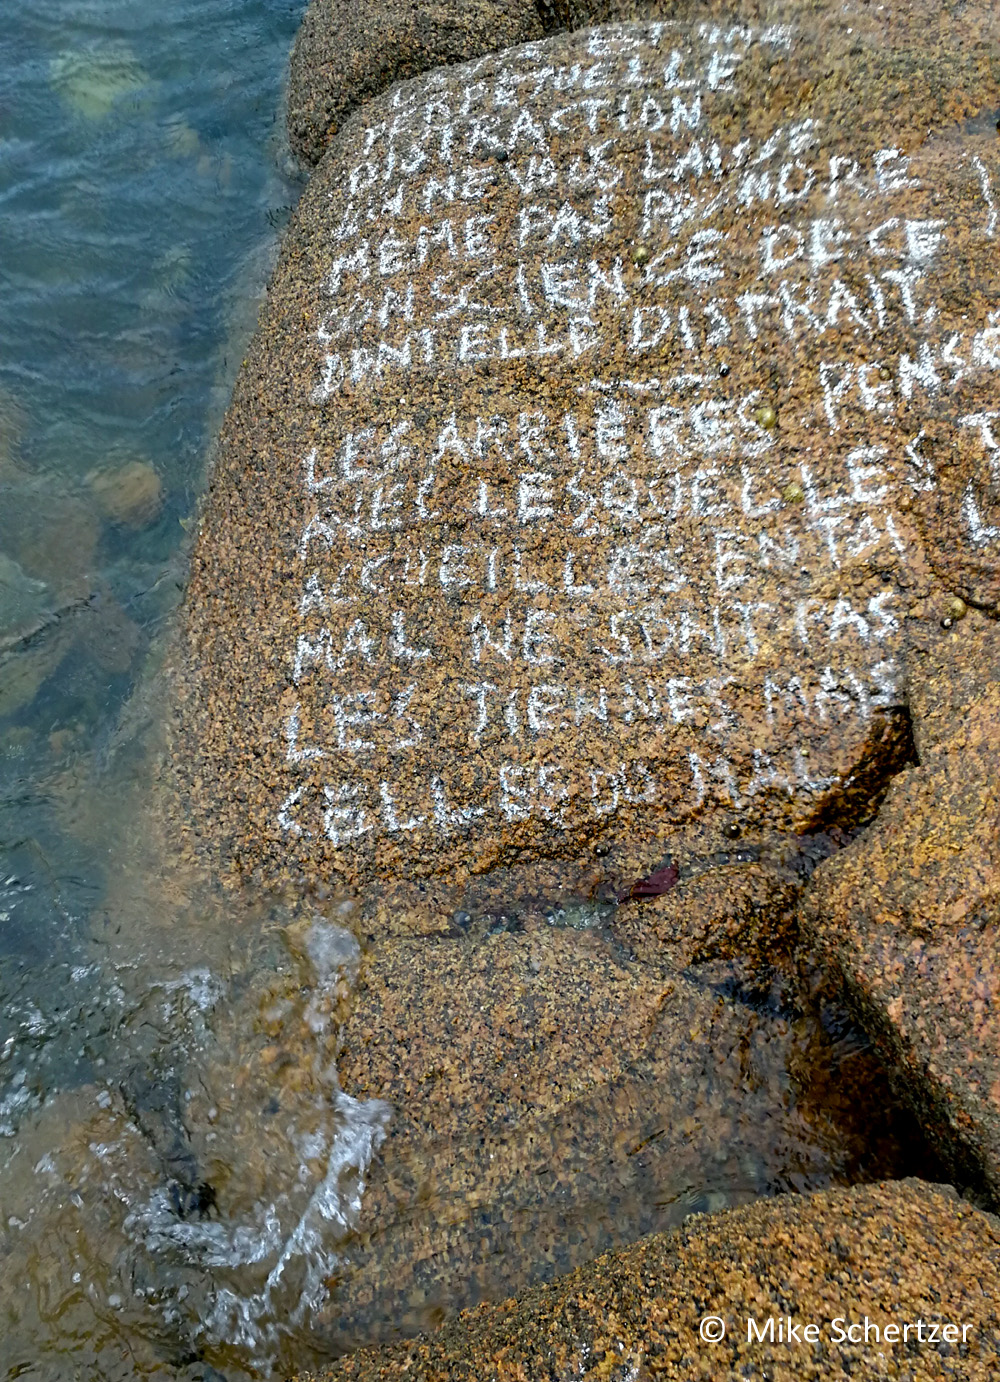 EST UNE
PERPETUELLE
DISTRACTION
ON NE VOUS LAISSE
MÊME PAS PRENDRE
CONSCIENCE DE CE
DONT ELLE DISTRAIT.
LES ARRIÈRES PENSÉ
AVEC LESQUELLES T
ACCUEILLES EN TOI L
MAL NE SONT PAS
LES TIENNES MAIS
CELLES DU MAL
© Mike Schertzer